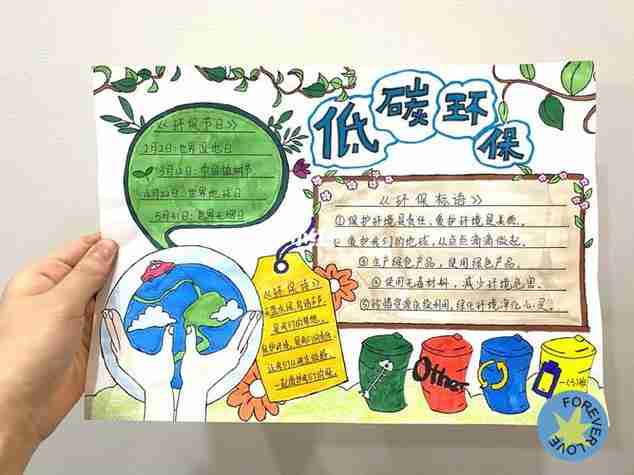 低碳环保
《环保节日》
2月2日:世界湿地日
3月12日:中国植树节
4月22日:世界地球日
5月31日:世界无烟日
《环保标语》
①保护环境是责任,爱护环境是美德。
爱护我们的地球,从点点滴滴做起。
③生产绿色产品,使用绿色产品。
④使用无毒材料,减少环境危害。
绿化环境净化心灵。
《环保语》
是我们的梦想,
保护环境,是我们的责任,
让我们从现在做起,
Other
FOREVER
LOVE